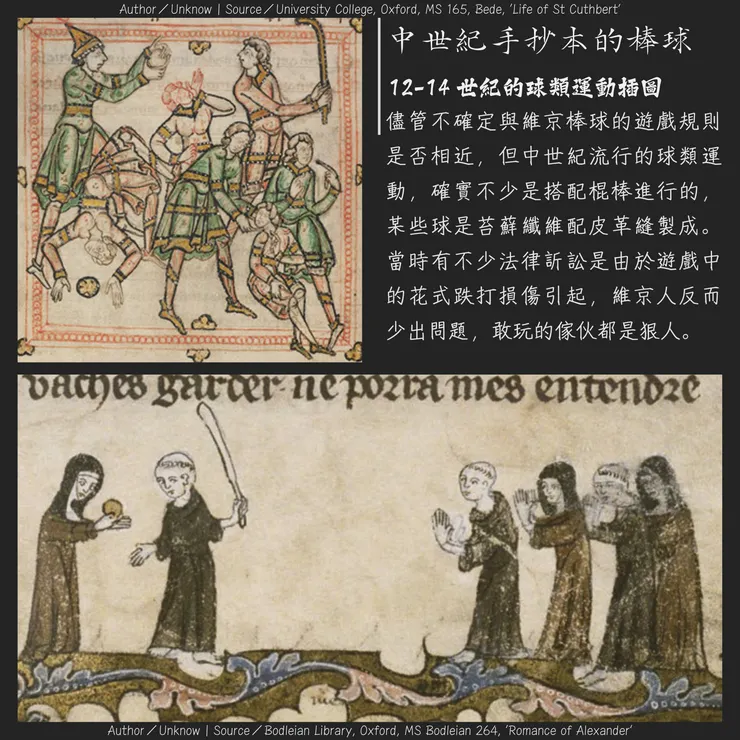 Author／Unknow | Source／University College, Oxford, MS 165, Bede, 'Life of St Cuthbert'
中世紀手抄本的棒球
12-14 世紀的球類運動插圖
儘管不確定與維京棒球的遊戲規則
是否相近，但中世紀流行的球類運
動，確實不少是搭配棍棒進行的，
某些球是苔蘚纖維配皮革縫製成。
當時有不少法律訴訟是由於遊戲中
的花式跌打損傷引起，維京人反而
少出問題，敢玩的傢伙都是狠人。
vaches garder ne porra mes entendre
Author／Unknow | Source／Bodleian Library, Oxford, MS Bodleian 264, 'Romance of Alexander'